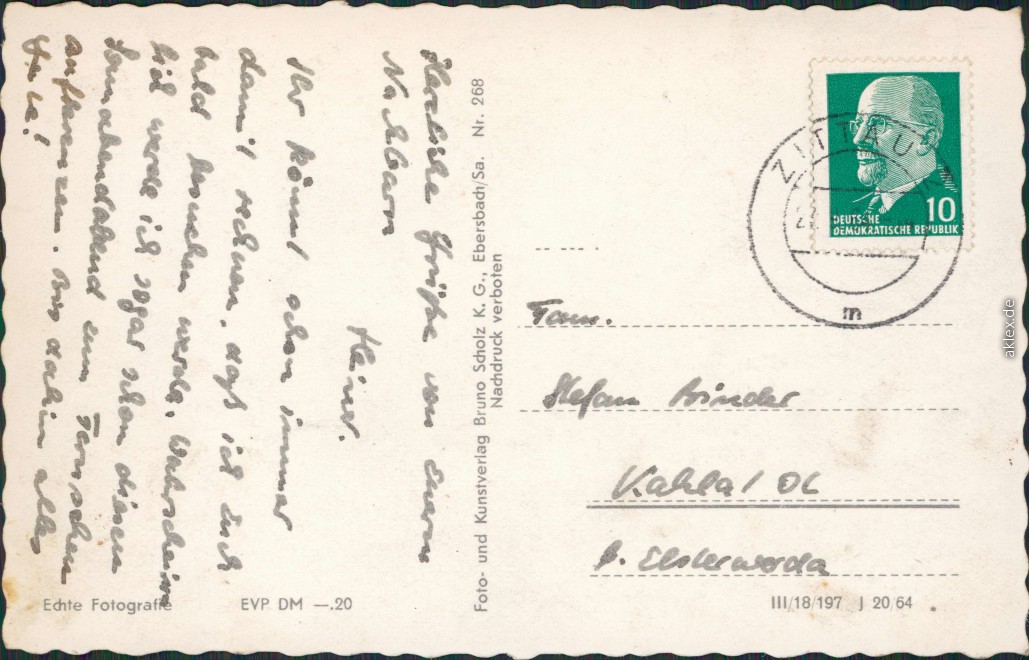 Herzliche Grüße von Eurem
Nachbarn
Heiner.
Ihr könnt schon immer
damit rechnen, daß ich Euch
bald besuchen werde. Wahrschein
lich werde ich sogar schon diesen
Sonnabendabend zum
aufkreuzen. Bis dahin alles
Gute!
Echte Fotografie
EVP DM —.20
Foto- und Kunstverlag Bruno Scholz K. G., Ebersbach/Sa. Nr. 268
Nachdruck verboten
ZITTAU
m
10
DEUTSCHE
DEMOKRATISCHE REPUBLIK
Fam.
Stefan Binder
Kahla / OL
b. Elsterwerda
III/18/197 J 20/64
aklex.de